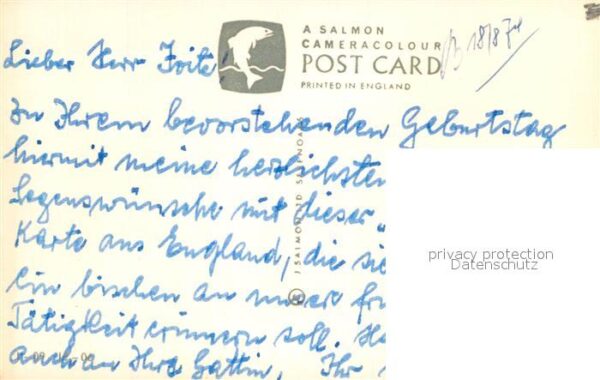 A SALMON
CAMERACOLOUR
POST CARD
PRINTED IN ENGLAND
18/8 74
Lieber Herr
Zu Ihrem bevorstehenden Geburtstag
hiermit meine herzlichsten
Segenswünsche mit dieser „
Karte aus England, die sie
Ein bischen an unsere fr
Tätigkeit erinnern soll. He
auch an Ihre Gattin, Ihr
J SALMON LTD SEVENOAKS
privacy protection
Datenschutz